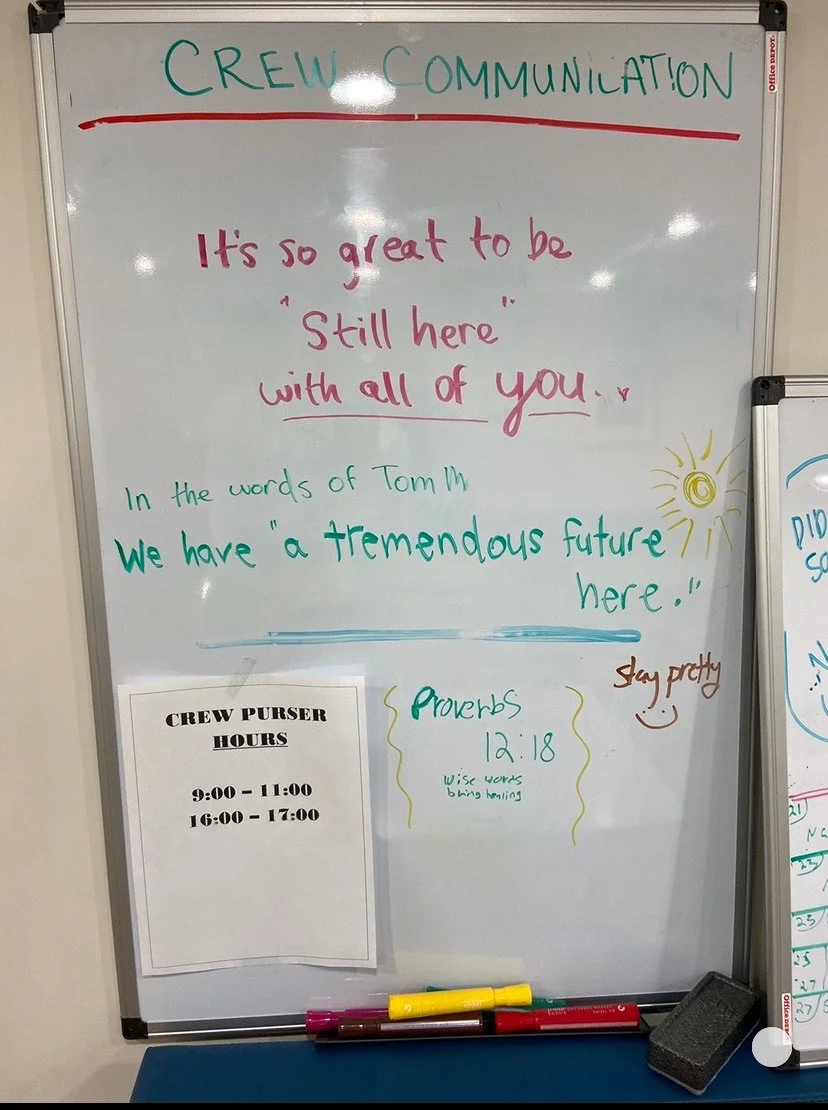 CREW COMMUNICATION
Office DEPOT
It's so great to be
"Still here"
with all of you.
In the words of Tom M
We have "a tremendous future
here."
stay pretty
CREW PURSER
HOURS
9:00 – 11:00
16:00 – 17:00
Proverbs
12:18
wise words
bring healing
DID
21
23
25
27